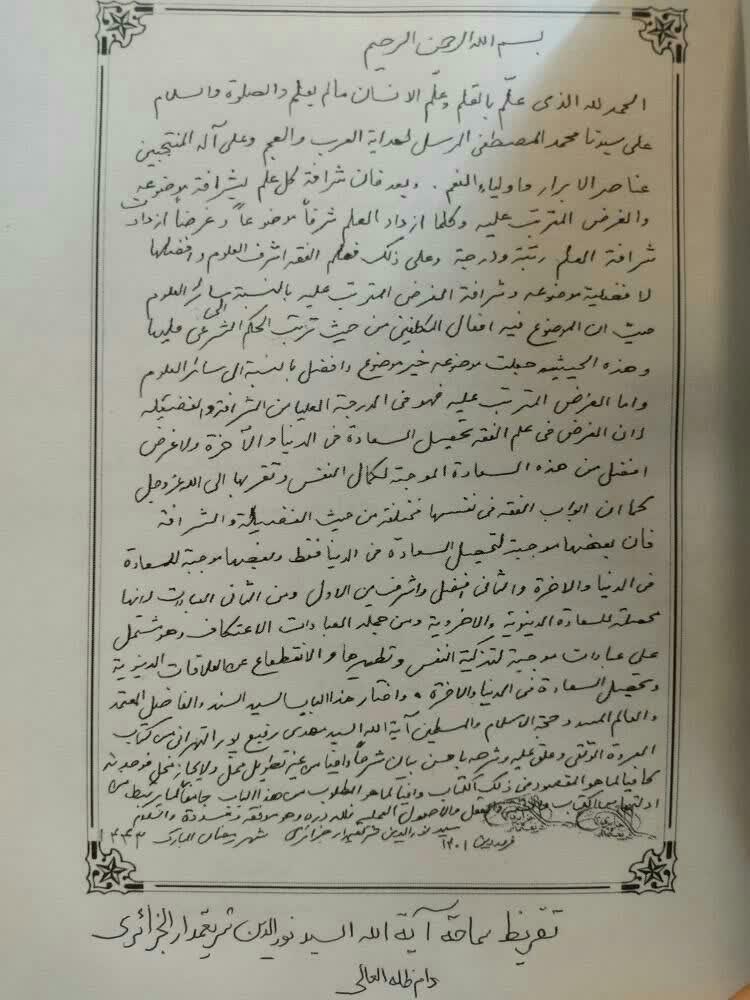 بسم الله الرحمن الرحیم
الحمد لله الذی علّم بالقلم وعلّم الانسان مالم یعلم والصلوة والسلام
علی سیدنا محمد المصطفی المرسل لهدایة العرب والعجم وعلی آله المنتجبین
عناصر الابرار واولیاء النعم . وبعد فان شرافة کل علم بشرافة موضوعه
والغرض المترتب علیه وکلما ازداد العلم شرفاً موضوعاً وغرضاً ازدادت
شرافة العلم رتبة ودرجة وعلی ذلک فعلم الفقه اشرف العلوم وافضلها
لافضلیة موضوعه وشرافة الغرض المترتب علیه بالنسبة الی سائر العلوم
حیث ان الموضوع فیه افعال المکلفین من حیث ترتب الحکم الشرعی علیها
وهذه الحیثیه جعلت موضوعه خیر موضوع وافضل بالنسبة الی سائر العلوم
واما الغرض المترتب علیه فهو فی الدرجة العلیا من الشرافة والفضیلة
اذ ان الغرض فی علم الفقه تحصیل السعادة فی الدنیا والآخرة ولا غرض
افضل من هذه السعادة الموجبة لکمال النفس وتقربها الی الله عز وجل
کما ان ابواب الفقه فی نفسها مختلفة من حیث الفضیلة والشرافة
فان بعضها موجبة لتحصیل السعادة فی الدنیا فقط وبعضها موجبة للسعادة
فی الدنیا والاخرة والثانی افضل واشرف من الاول ومن الثانی العبادات فانها
محصلة للسعادة الدنیویة والاخرویة ومن جملة العبادات الاعتکاف وهو مشتمل
علی عبادات موجبة لتزکیة النفس وتطهیرها والانقطاع عن العلاقات الدنیویة
وتحصیل السعادة فی الدنیا والاخرة واختار هذا الباب السید السند والفاضل المعتمد
والعالم المسدد حجة الاسلام والمسلمین آیة الله السید مهدی رفیع پور التهرانی من کتاب
العروة الوثقی وعلق علیه وشرحه باحسن بیان شرحاً وافیاً من غیر تطویل ممل ولا ایجاز مخل فوجدته
کافیاً لما هو المقصود فی ذلک الکتاب وافیاً لما هو المطلوب من هذا الباب جامعاً لما یرتبط من
ادلتها من الکتاب والسنة والعقل والاصول العملیه فلله دره وهو موفقه ومسدده والسلام
سید نورالدین شریعتمدار جزائری شهر رمضان المبارک ۱۴۴۳
فروردین ۱۴۰۱
تقریظ سماحة آیة الله السید نورالدین شریعتمدار الجزائری
دام ظله العالی